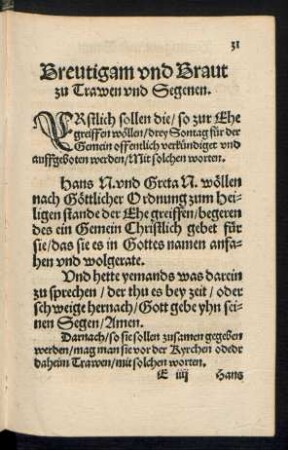 31
Breutigam vnd Braut
zu Trawen vnd Segenen.
ERstlich sollen die/ so zur Ehe
greiffen wöllen/ drey Sontag für der
Gemein offentlich verkündiget vnd
auffgeboten werden/ Mit solchen worten.
Hans N. vnd Greta N. wöllen
nach Göttlicher Ordnung zum hei-
ligen stande der Ehe greiffen/ begeren
des ein Gemein Christlich gebet für
sie/ das sie es in Gottes namen anfa-
hen vnd wolgerate.
Vnd hette yemands was darein
zu sprechen / der thu es bey zeit / oder
schweige hernach/ Gott gebe yhn sei-
nen Segen/ Amen.
Darnach/ so sie sollen zusamen gegeben
werden/ mag man sie vor der Kyrchen odedr
daheim Trawen/ mit solchen worten.
E iiij Hans